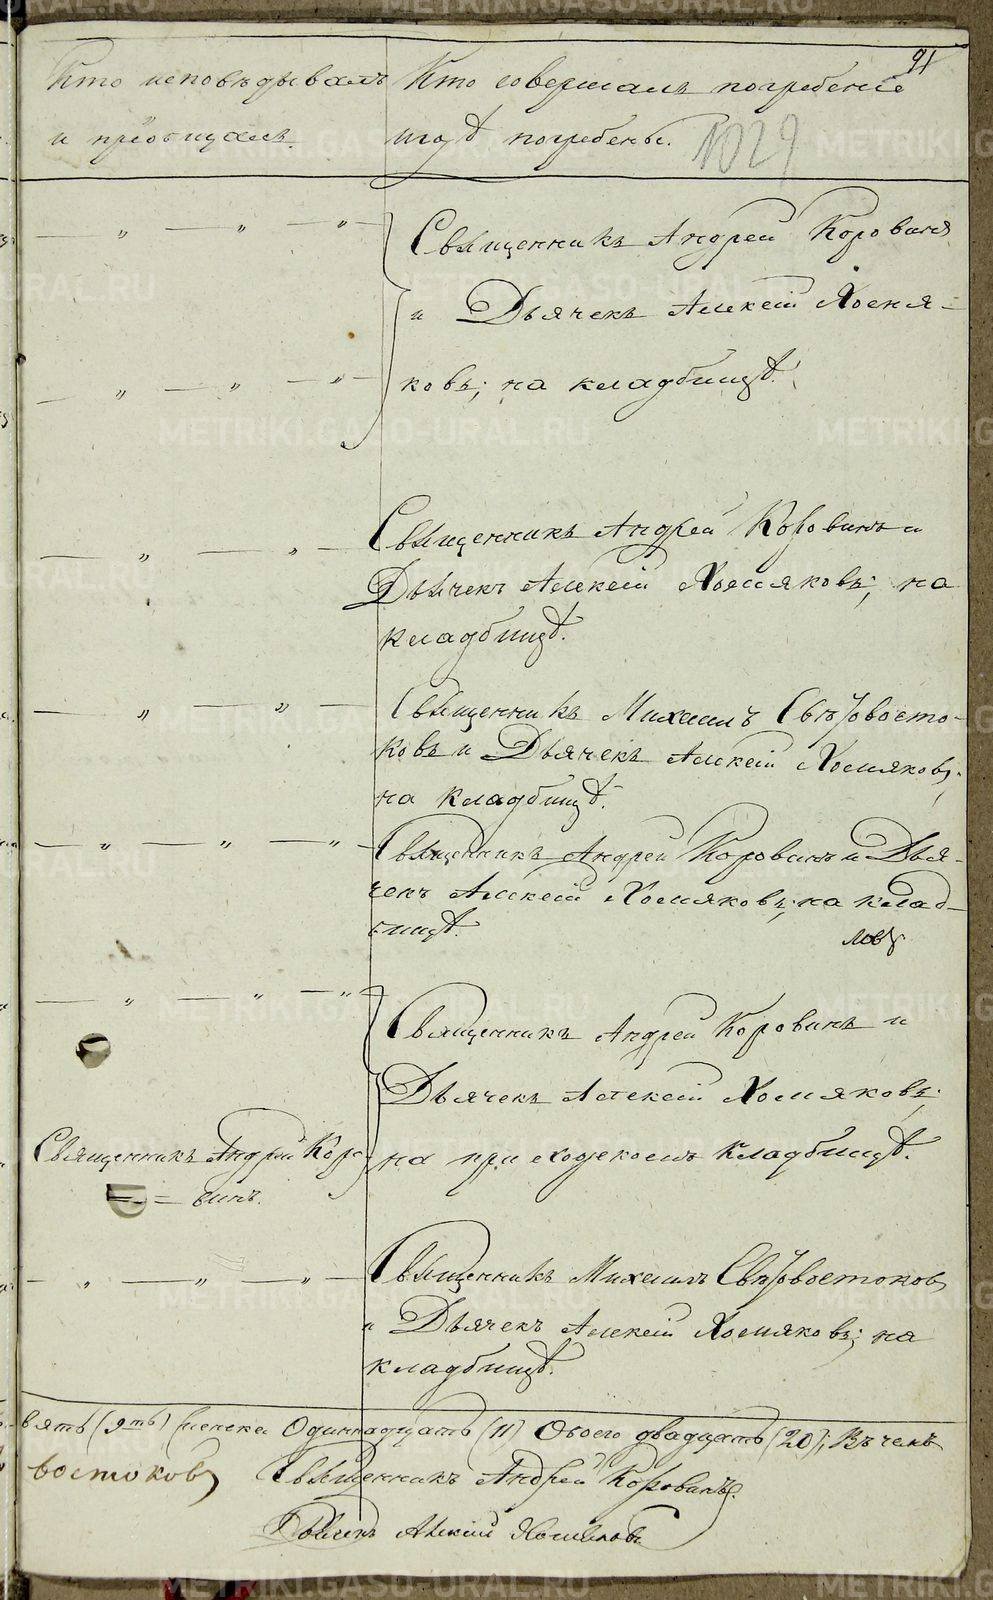 91
Кто исповѣдывалъ Кто совершалъ погребеніе
и пріобщалъ. и гдѣ погребены.
1029
Священникъ Андрей Коровинъ
и Дьячекъ Алексій Хомя-
ковъ; на кладбищѣ.
Священникъ Андрей Коровинъ и
Дьячекъ Алексій Хомяковъ; на
кладбищѣ.
Священникъ Михаилъ Свѣтовосто-
ковъ и Дьячекъ Алексій Хомяковъ;
на кладбищѣ.
Священникъ Андрей Коровинъ и Дья-
чекъ Алексій Хомяковъ; на клад-
бищѣ.
Священникъ Андрей Коровинъ и
Дьячекъ Алексій Хомяковъ;
Священникъ Андрей Коро-
=винъ.
на приходскомъ кладбищѣ.
Священникъ Михаилъ Свѣтовостоковъ
и Дьячекъ Алексій Хомяковъ; на
кладбищѣ.
вять (9ть) женска Одиннадцать (11) Обоего двадцать (20); Въ чемъ
востоковъ Священникъ Андрей Коровинъ.
Дьячекъ Алексій Хомяковъ
METRIKI.GASO-URAL.RU